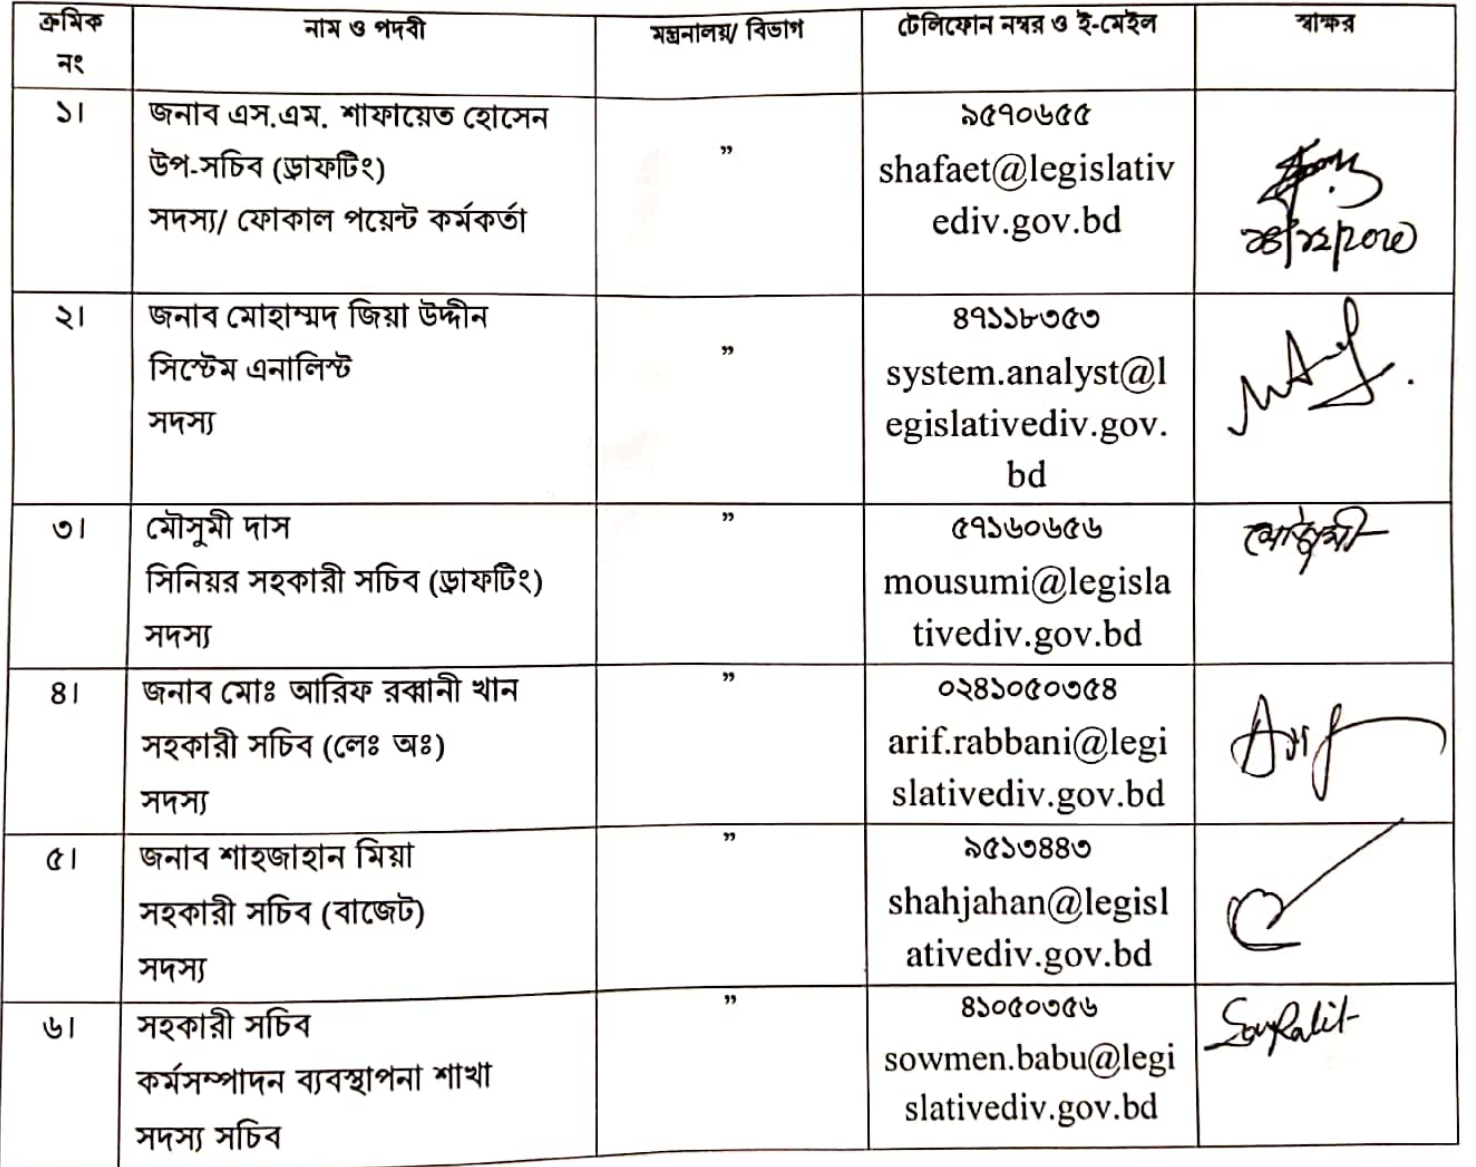 ক্রমিক নং
নাম ও পদবী
মন্ত্রনালয়/ বিভাগ
টেলিফোন নম্বর ও ই-মেইল
স্বাক্ষর
১।
জনাব এস.এম. শাফায়েত হোসেন
উপ-সচিব (ড্রাফটিং)
সদস্য/ ফোকাল পয়েন্ট কর্মকর্তা
”
৯৫৭০৬৫৫
shafaet@legislativ
ediv.gov.bd
২।
জনাব মোহাম্মদ জিয়া উদ্দীন
সিস্টেম এনালিস্ট
সদস্য
”
৪৭১১৮৩৫৩
system.analyst@l
egislativediv.gov.
bd
৩।
মৌসুমী দাস
সিনিয়র সহকারী সচিব (ড্রাফটিং)
সদস্য
”
৫৭১৬০৬৫৬
mousumi@legisla
tivediv.gov.bd
মৌসুমী
৪।
জনাব মোঃ আরিফ রব্বানী খান
সহকারী সচিব (লেঃ অঃ)
সদস্য
”
০২৪১০৫০৩৫৪
arif.rabbani@legi
slativediv.gov.bd
Arif
৫।
জনাব শাহজাহান মিয়া
সহকারী সচিব (বাজেট)
সদস্য
”
৯৫১৩৪৪৩
shahjahan@legisl
ativediv.gov.bd
৬।
সহকারী সচিব
কর্মসম্পাদন ব্যবস্থাপনা শাখা
সদস্য সচিব
”
৪১০৫০৩৫৬
sowmen.babu@legi
slativediv.gov.bd